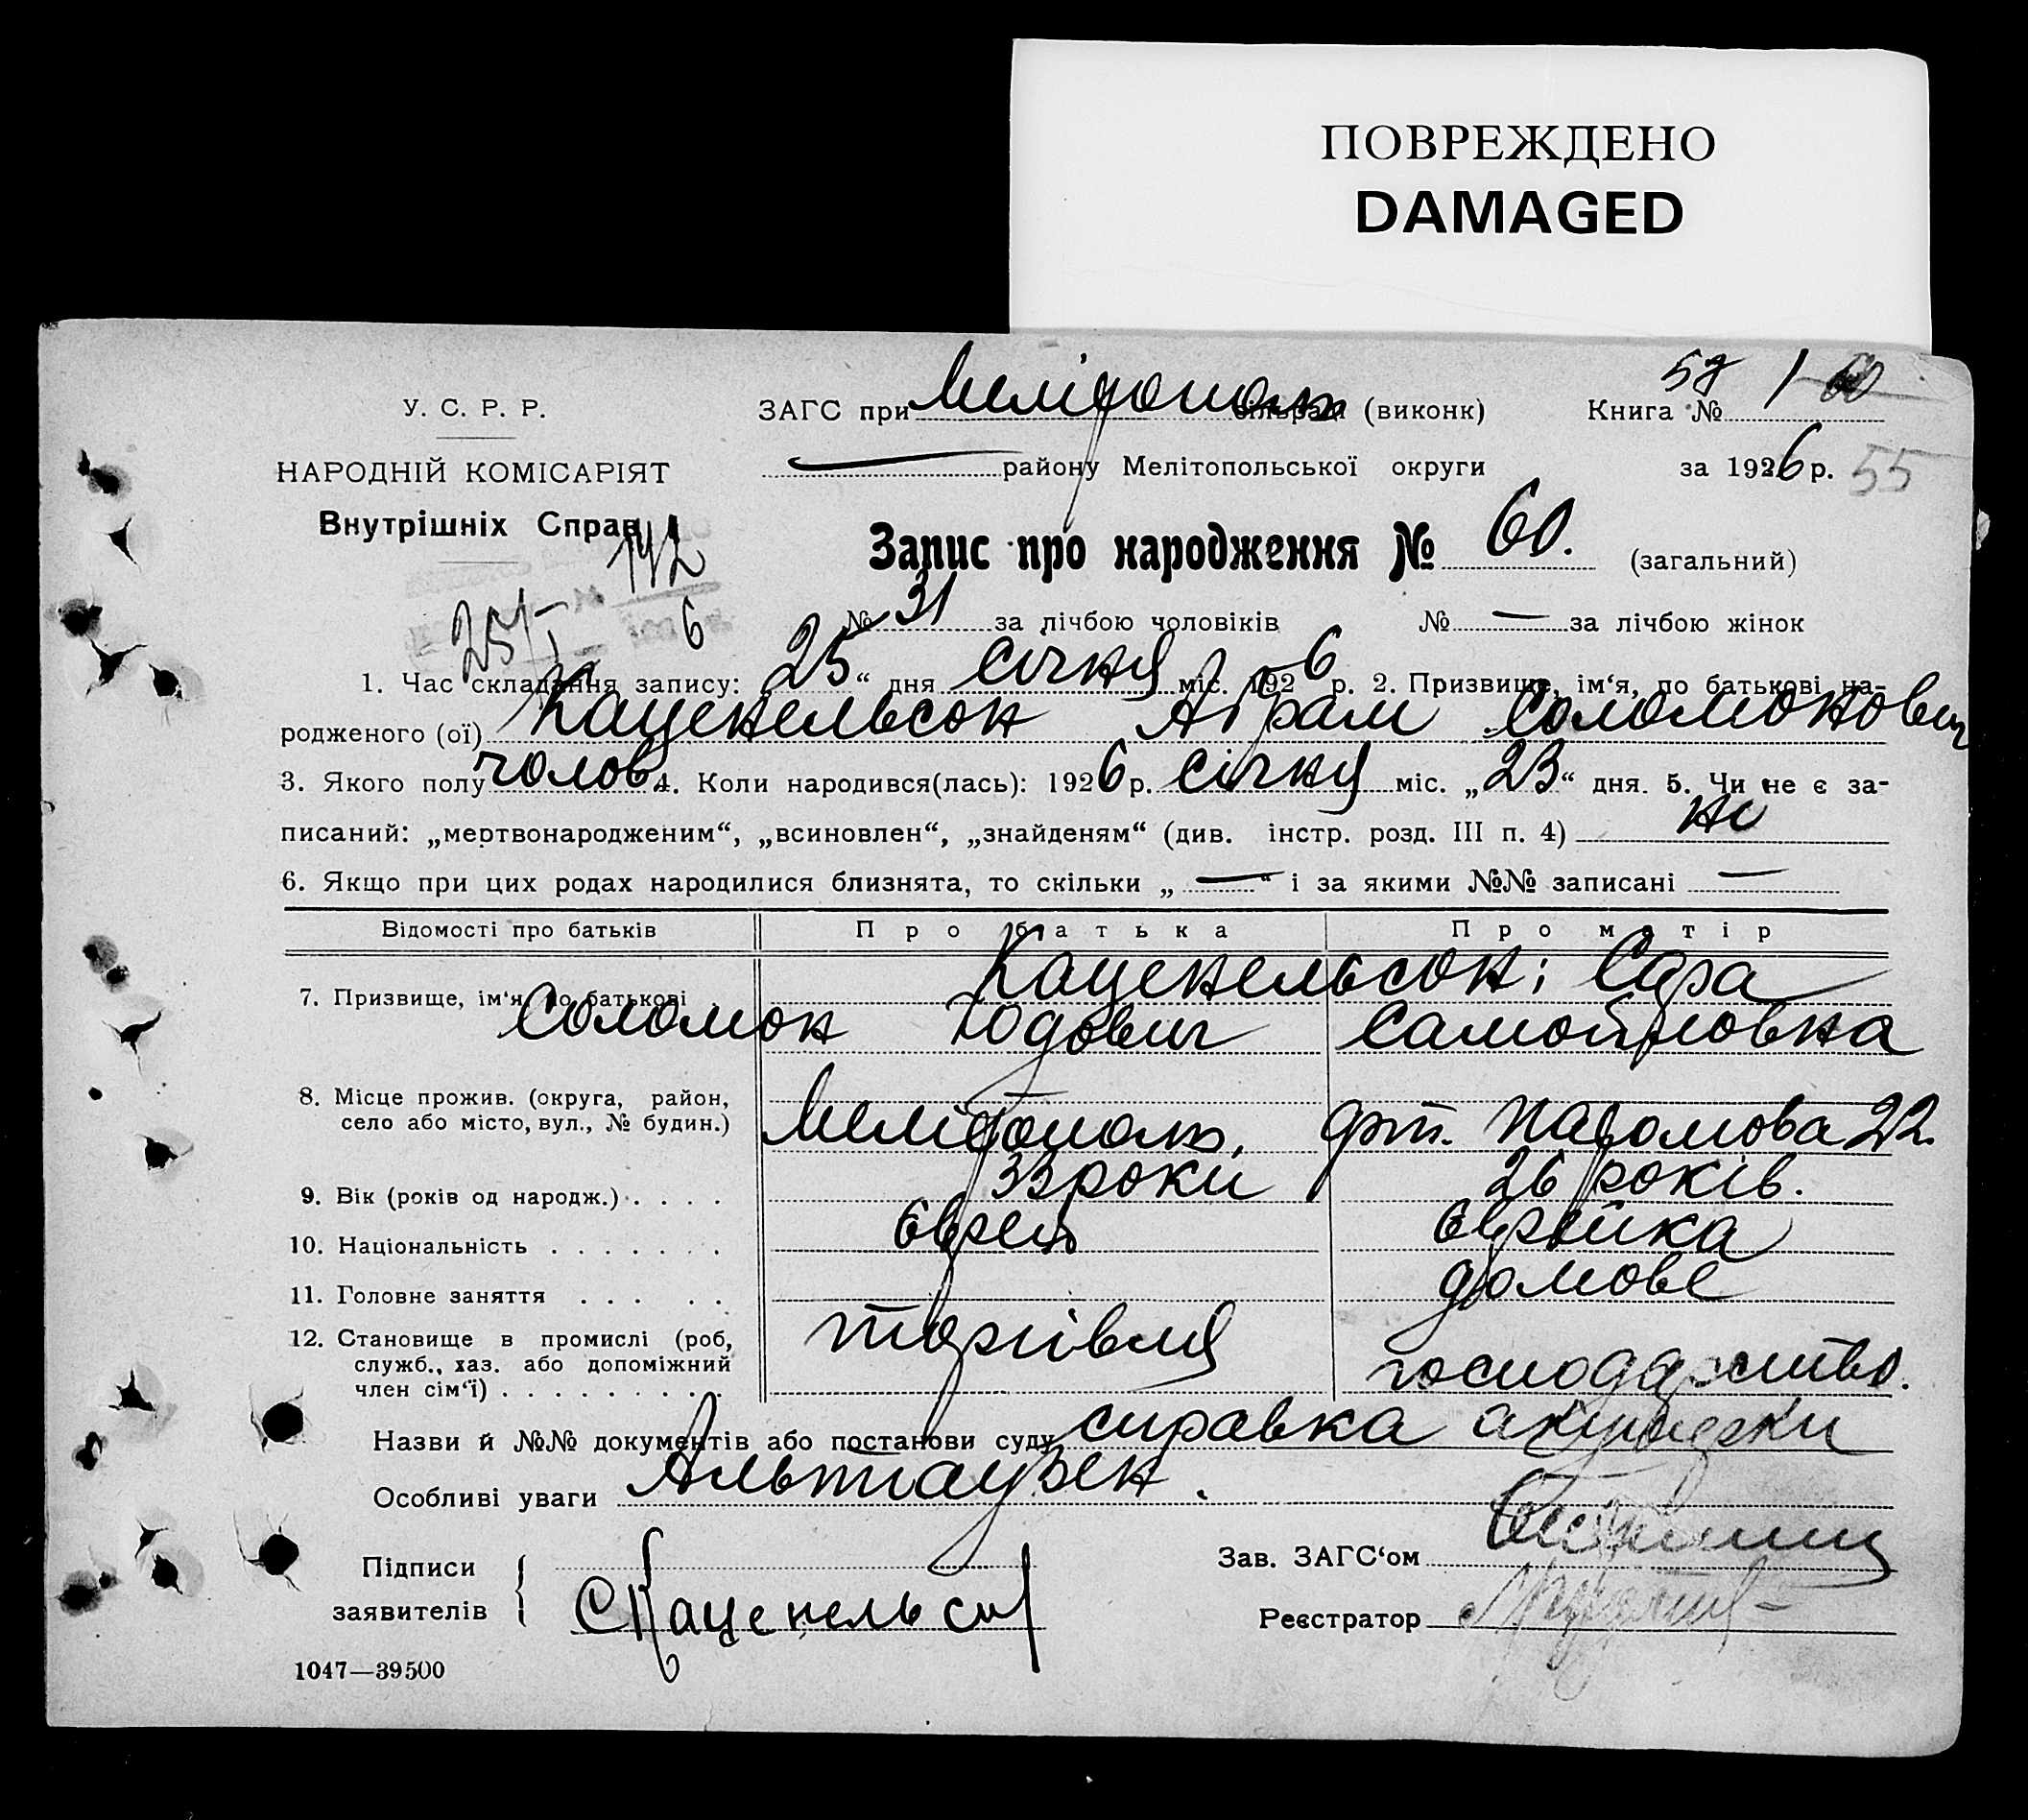 ПОВРЕЖДЕНО
DAMAGED
У. С. Р. Р.
НАРОДНІЙ КОМІСАРІЯТ
Внутрішніх Справ
142
6
25/I
ЗАГС при Мелітополь сільраді (виконк)
57 / 60
Книга №
— району Мелітопольської округи
за 1926 р. 55
Запис про народження № 60. (загальний)
№ 31 за лічбою чоловіків № — за лічбою жінок
1. Час складання запису: 25 “ дня січня міс. 1926 р. 2. Призвище, ім‘я, по батькові на-
родженого (ої) Каценельсон Абрам Соломонович
3. Якого полу чолов 4. Коли народився(лась): 1926 р. січня міс. „23“ дня. 5. Чи не є за-
писаний: „мертвонародженим“, „всиновлен“, „знайденям“ (див. інстр. розд. III п. 4) ні
6. Якщо при цих родах народилися близнята, то скільки „ — “ і за якими №№ записані —
Відомості про батьків Про батька Про матір
7. Призвище, ім‘я, по батькові Каценельсон: Сара
Соломон Юдович Самойловна
8. Місце прожив. (округа, район,
село або місто, вул., № будин.) Мелітополь, 22.
9. Вік (років од народж.) . . . . 33 роки 26 років.
10. Національність . . . . . . . Єврей Єврейка
11. Головне заняття . . . . . домове
12. Становище в промислі (роб,
служб., хаз. або допоміжний
член сім‘ї) . . . . . . . . . . торгівля господарство.
Назви й №№ документів або постанови суду справка акушерки
Особливі уваги Альтаузен.
Підписи
заявителів
СКаценельсон
Зав. ЗАГС‘ом
Реєстратор
1047—39500